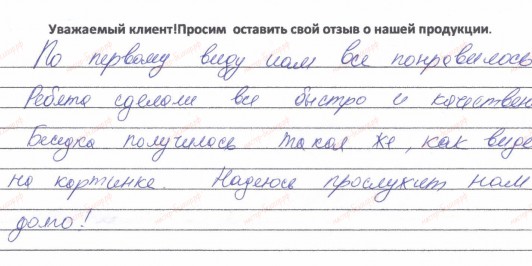 Уважаемый клиент!Просим оставить свой отзыв о нашей продукции.
По первому виду нам все понравилось
Ребята сделали все быстро и качествен
Беседка получилась такая же, как виде
на картинке. Надеюсь прослужит нам
долго!